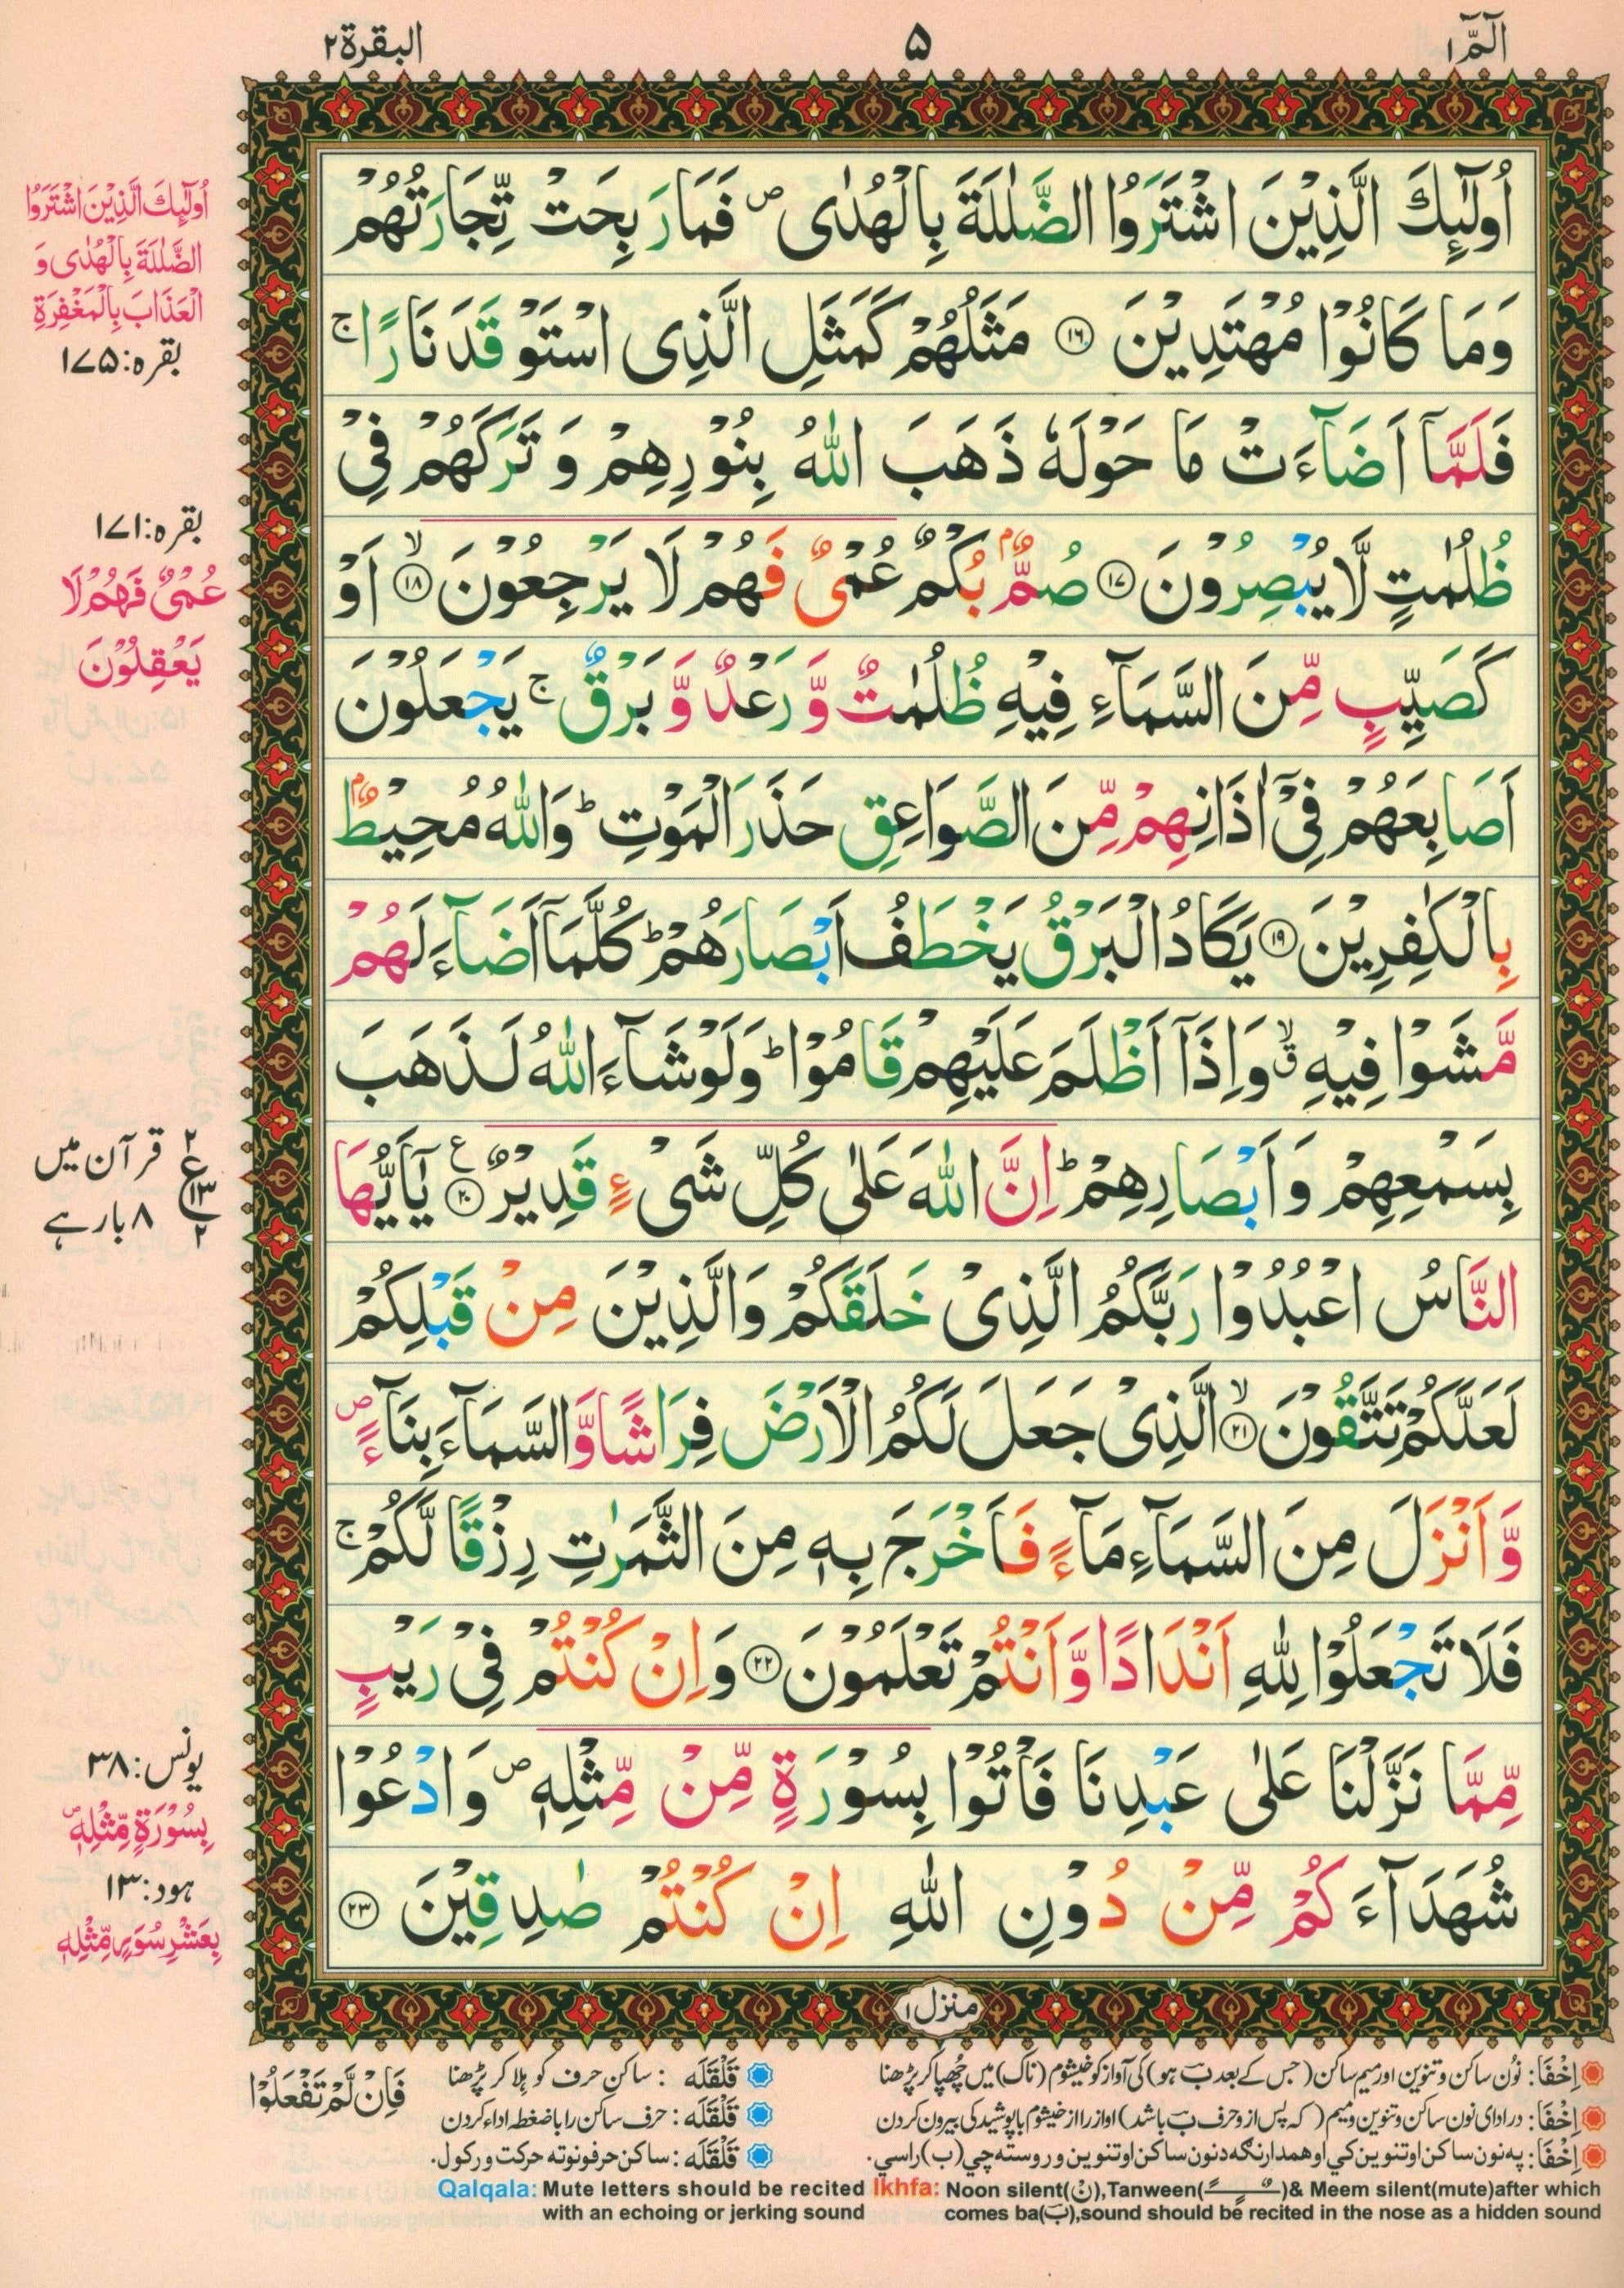 الٓمّٓ ۱
۵
البقرة ۲
اُولٰٓئِكَ الَّذِيْنَ اشْتَرَوُا الضَّلٰلَةَ بِالْهُدٰى ۪ فَمَا رَبِحَتْ تِّجَارَتُهُمْ
وَمَا كَانُوْا مُهْتَدِيْنَ ۝۱۶ مَثَلُهُمْ كَمَثَلِ الَّذِى اسْتَوْقَدَ نَارًا ۚ
فَلَمَّآ اَضَآءَتْ مَا حَوْلَهٗ ذَهَبَ اللّٰهُ بِنُوْرِهِمْ وَ تَرَكَهُمْ فِىْ
ظُلُمٰتٍ لَّا يُبْصِرُوْنَ ۝۱۷ صُمٌّۢ بُكْمٌ عُمْىٌ فَهُمْ لَا يَرْجِعُوْنَ ۝۱۸ۙ اَوْ
كَصَيِّبٍ مِّنَ السَّمَآءِ فِيْهِ ظُلُمٰتٌ وَّ رَعْدٌ وَّ بَرْقٌ ۚ يَجْعَلُوْنَ
اَصَابِعَهُمْ فِىْٓ اٰذَانِهِمْ مِّنَ الصَّوَاعِقِ حَذَرَ الْمَوْتِ ؕ وَاللّٰهُ مُحِيْطٌۢ
بِالْكٰفِرِيْنَ ۝۱۹ يَكَادُ الْبَرْقُ يَخْطَفُ اَبْصَارَهُمْ ؕ كُلَّمَآ اَضَآءَ لَهُمْ
مَّشَوْا فِيْهِ ۙۗ وَاِذَآ اَظْلَمَ عَلَيْهِمْ قَامُوْا ؕ وَلَوْ شَآءَ اللّٰهُ لَذَهَبَ
بِسَمْعِهِمْ وَ اَبْصَارِهِمْ ؕ اِنَّ اللّٰهَ عَلٰى كُلِّ شَىْءٍ قَدِيْرٌ ۝۲۰ ع يٰٓاَيُّهَا
النَّاسُ اعْبُدُوْا رَبَّكُمُ الَّذِىْ خَلَقَكُمْ وَالَّذِيْنَ مِنْ قَبْلِكُمْ
لَعَلَّكُمْ تَتَّقُوْنَ ۝۲۱ۙ الَّذِىْ جَعَلَ لَكُمُ الْاَرْضَ فِرَاشًا وَّالسَّمَآءَ بِنَآءً ۪
وَّ اَنْزَلَ مِنَ السَّمَآءِ مَآءً فَاَخْرَجَ بِهٖ مِنَ الثَّمَرٰتِ رِزْقًا لَّكُمْ ۚ
فَلَا تَجْعَلُوْا لِلّٰهِ اَنْدَادًا وَّ اَنْتُمْ تَعْلَمُوْنَ ۝۲۲ وَ اِنْ كُنْتُمْ فِىْ رَيْبٍ
مِّمَّا نَزَّلْنَا عَلٰى عَبْدِنَا فَاْتُوْا بِسُوْرَةٍ مِّنْ مِّثْلِهٖ ۪ وَ ادْعُوْا
شُهَدَآءَكُمْ مِّنْ دُوْنِ اللّٰهِ اِنْ كُنْتُمْ صٰدِقِيْنَ ۝۲۳
اُولٰٓئِكَ الَّذِيْنَ اشْتَرَوُا
الضَّلٰلَةَ بِالْهُدٰى وَ
الْعَذَابَ بِالْمَغْفِرَةِ
بقره: ۱۷۵
بقره: ۱۷۱
عُمْىٌ فَهُمْ لَا
يَعْقِلُوْنَ
۲
ع ۱۳
۲
قرآن میں
۸ بار ہے
یونس: ۳۸
بِسُوْرَةٍ مِّثْلِهٖ ۪
ہود: ۱۳
بِعَشْرِ سُوَرٍ مِّثْلِهٖ
منزل ۱
اِخْفَا: نُون ساکن و تنوین اور میم ساکن (جس کے بعد بَ ہو) کی آواز کو خیشوم (ناک) میں چُھپا کر پڑھنا
قَلْقَلَه: ساکن حرف کو ہلا کر پڑھنا
فَاِنْ لَّمْ تَفْعَلُوْا
اِخْفَا: در ادای نون ساکن و تنوین و میم (که پس از و حرف بَ باشد) اواز را از خیشوم با پوشیدگی بیرون کردن
قَلْقَلَه: حرف ساکن را با ضغطه اداء کردن
اِخْفَا: په نون ساکن او تنوین کي او همدارنګه د نون ساکن او تنوین وروسته چي (ب) راسي.
قَلْقَلَه: ساکن حرفونو ته حرکت ورکول.
Qalqala: Mute letters should be recited
with an echoing or jerking sound
Ikhfa: Noon silent(نْ),Tanween(ـًـٍـٌ)& Meem silent(mute)after which
comes ba(بَ),sound should be recited in the nose as a hidden sound